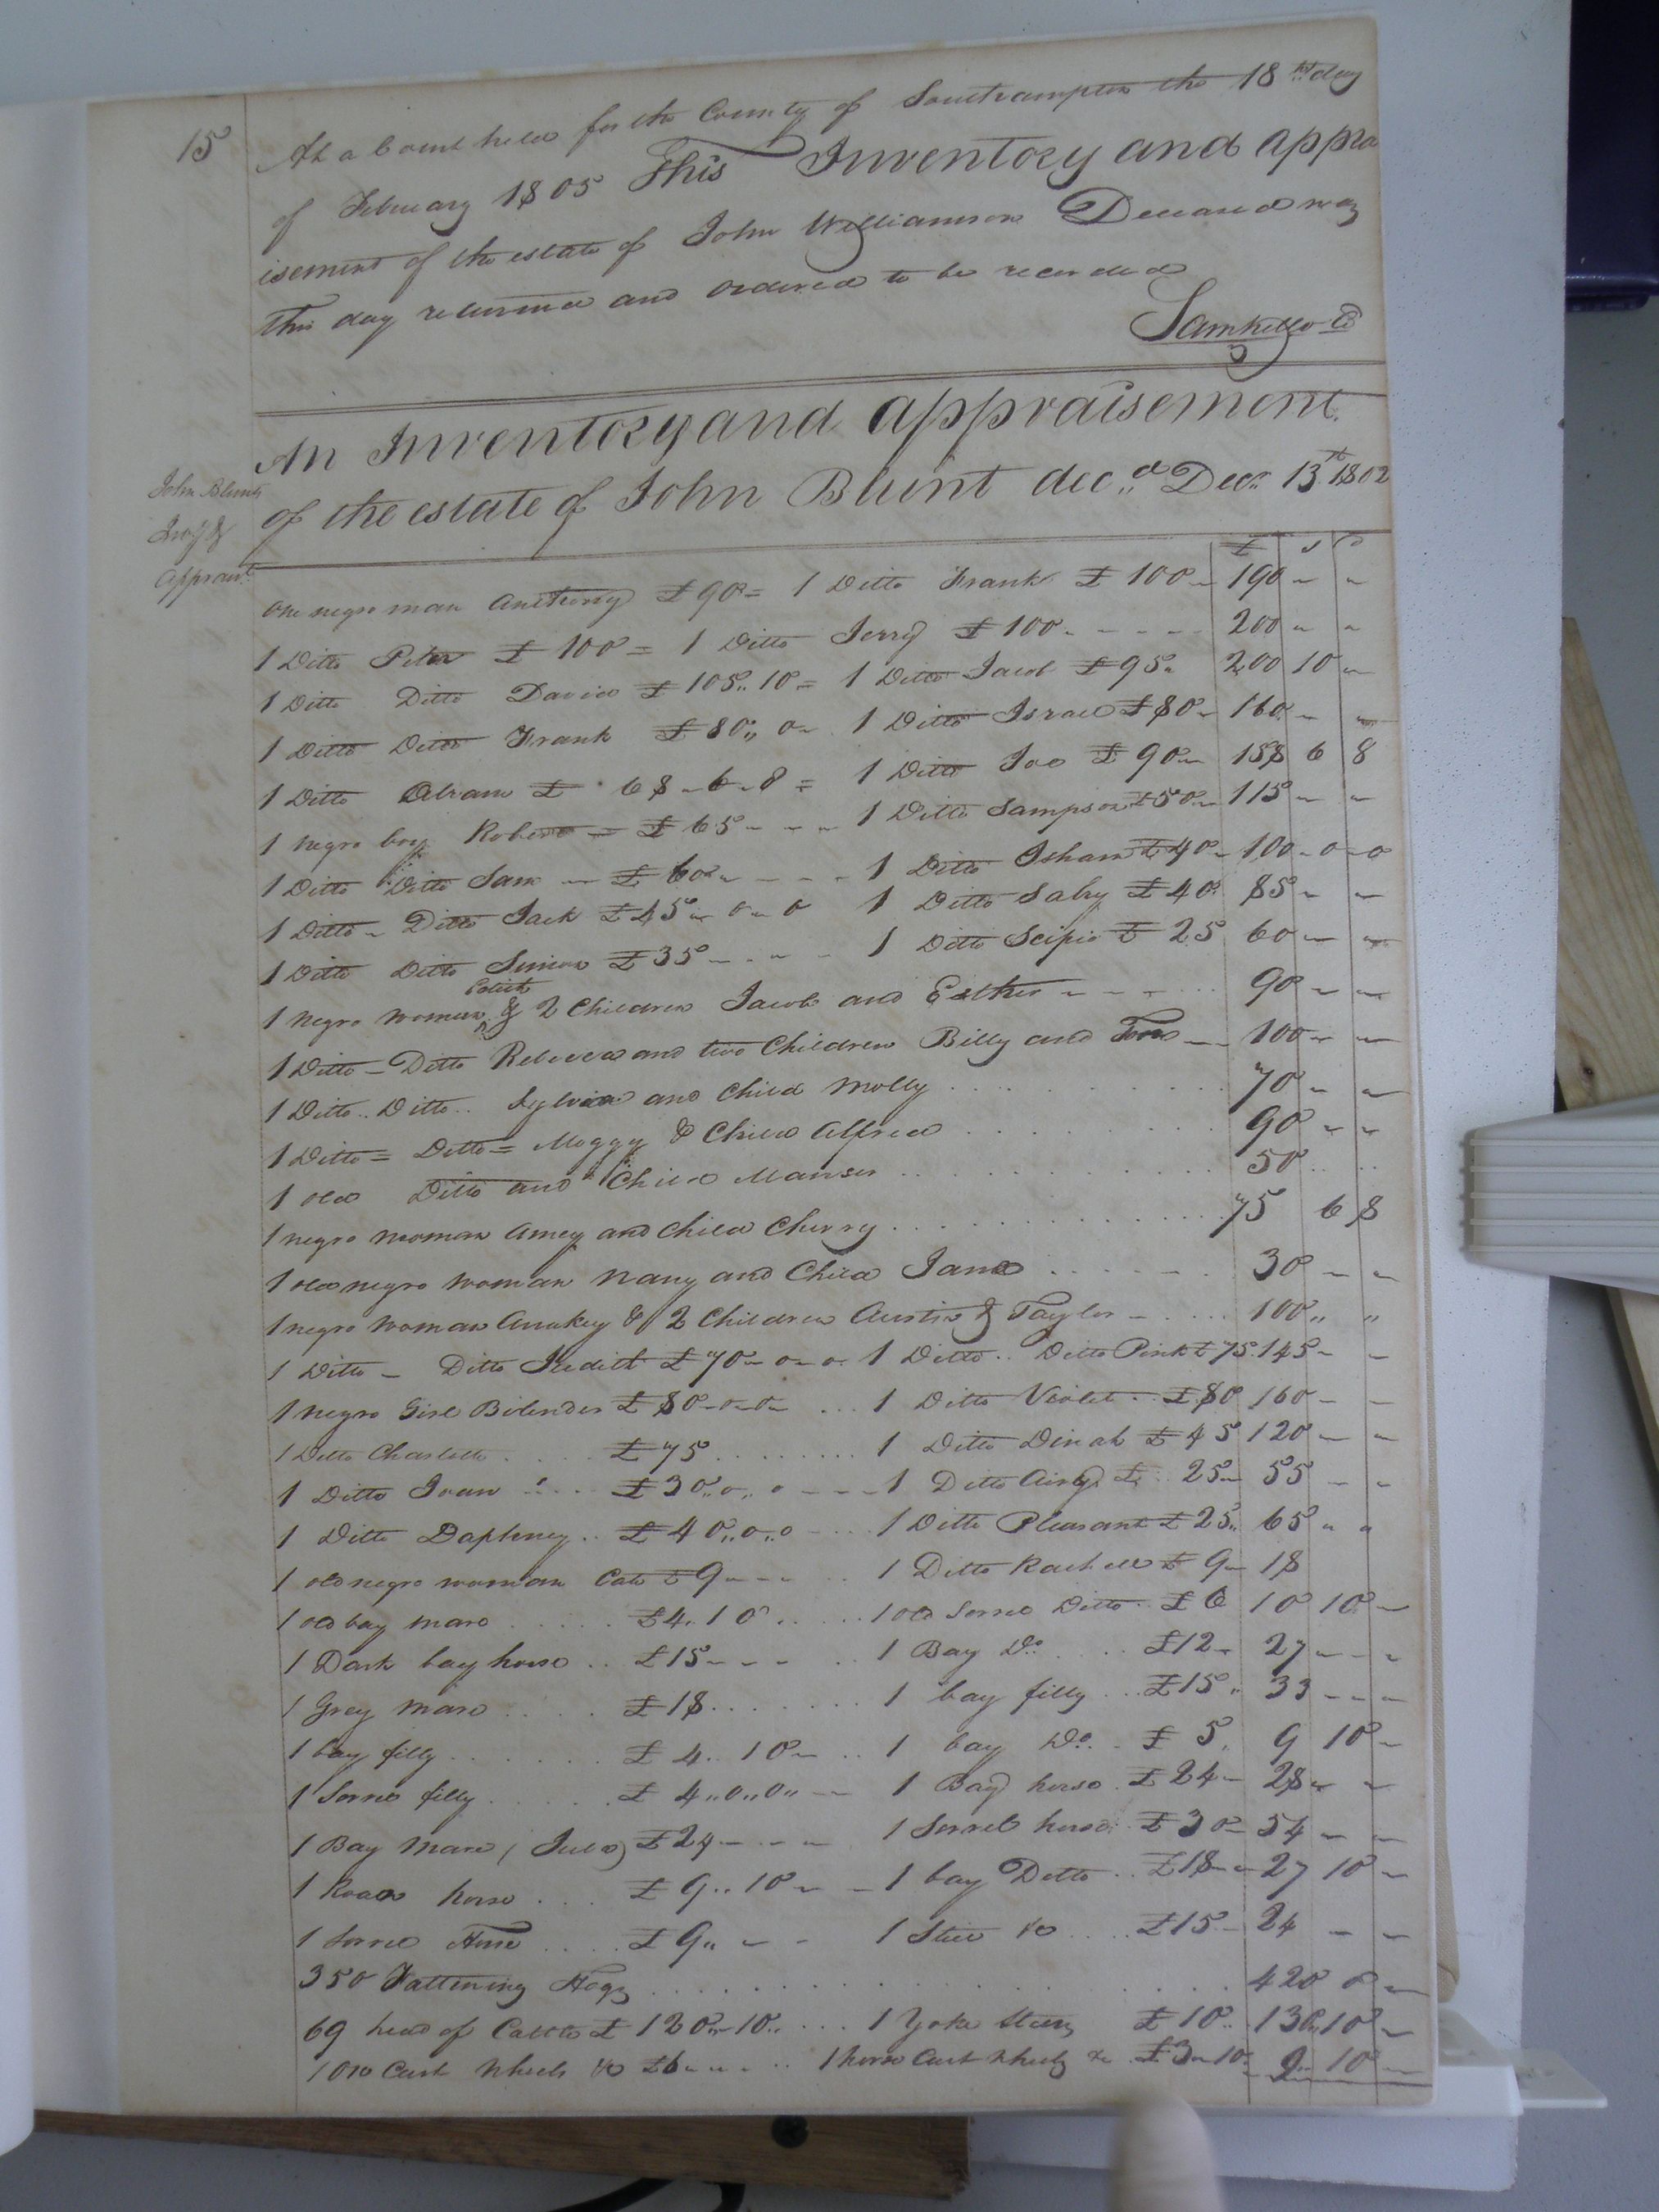 15
At a Court held for the County of Southampton the 18th day
of February 1805 This Inventory and appra
isement of the estate of John Williamson Deceased was
this day returned and ordered to be recorded
Sam Kello Cl
An Inventory and appraisement
of the estate of John Blunt dec.d Decr. 13th 1802
John Blunts
Invy &
Appraist.
£ s d
One negro man Anthony £90= 1 Ditto Frank £100 190 " "
1 Ditto Peter £100= 1 Ditto Jerry £100 200 " "
1 Ditto Ditto David £105..10= 1 Ditto Jacob £95 200 10 "
1 Ditto Ditto Frank £80,, 0 1 Ditto Israel £80 160 " "
1 Ditto Abram £68-6-8= 1 Ditto Joe £90 158 6 8
1 negro boy Robert £65 1 Ditto Sampson £50 115 " "
1 Ditto Ditto Sam £60 1 Ditto Isham £40 100-0-0
1 Ditto Ditto Jack £45-0-0 1 Ditto Salvy £40 85 " "
1 Ditto Ditto Simon £35 1 Ditto Scipio £25 60 " "
1 negro woman & 2 Children Jacob and Esther 90 " "
1 Ditto Ditto Rebecca and two Children Billy and Tom 100 " "
1 Ditto.. Ditto.. Sylvia and Child Molly 70 " "
1 Ditto= Ditto= Moggy & Child Alfred 90 " "
1 old Ditto and Child Manser 50
1 negro woman Amey and Child Cherry 75 6 8
1 old negro woman Nany and Child Jame 30 " "
1 negro woman Anakey & 2 Children Austin & Taylor 100 " "
1 Ditto Ditto Judith £70-0-0 1 Ditto.. Ditto Pink £75 145 " "
1 negro Girl Bilender £80-0-0 1 Ditto Violet £80 160 " "
1 Ditto Charlotte £75 1 Ditto Dinah £45 120 " "
1 Ditto Joan £30,,0,,0 1 Ditto Airy £25 55 " "
1 Ditto Daphney £40,,0,,0 1 Ditto Pleasant £25 65 " "
1 old negro woman Cate £9 1 Ditto Rachell £9 18
1 old bay mare £4..10 1 old Sorrel Ditto £6 10 10
1 Dark bay horse £15 1 Bay Do. £12 27 " "
1 Grey mare £18 1 bay filly £15 33 " "
1 bay filly £4..10 1 bay Do. £5 9 10
1 Sorrel filly £4,,0,,0 1 Bay horse £24 28 " "
1 Bay Mare (Jule) £24 1 Sorrel horse £30 54 " "
1 Roan horse £9..10 1 bay Ditto £18 27 10
1 Sorrel Horse £9 1 Steed £15 24 " "
350 Fattening Hogs 420 0 "
69 head of Cattle £120..10 1 Yoke Steers £10 130 10
1 Ox Cart Wheels &c £6 1 horse Cart Wheels &c £3-10 9 10